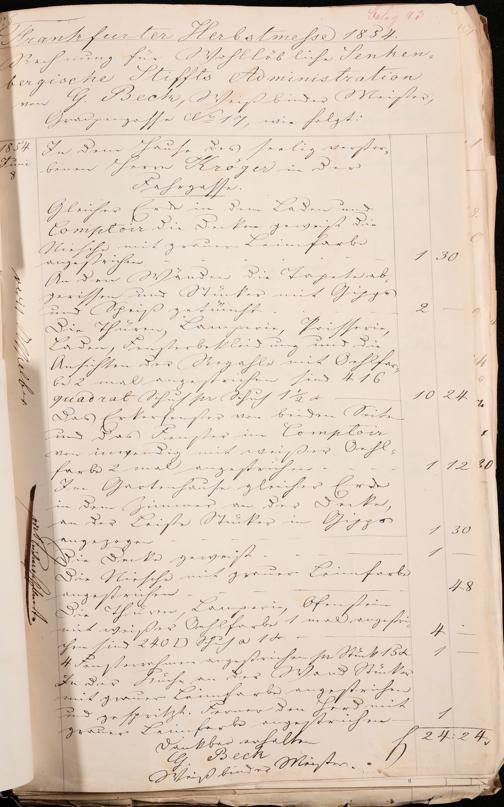 Beleg 93
Frankfurter Herbstmesse 1834.
Rechnung für Wohllöbliche Senken-
bergische Stiffts Administration
von G. Beck, Weißbinder Meister,
Graupengasse No 17, wie folgt:
1834
Juni
8
In dem Hause des seelig verstor-
benen Herrn Kröger in der
Fahrgasse.
Gleicher Erde in dem Laden und
Comptoir die Decken geweist die
Niesche mit grauer Leimfarbe
angestrichen 1 30
An den Wänden die Tapete ab-
gerissen und Stücker mit Gipps
und Speiß getüncht 2 —
Die Thüren, Lamperie,
Laden, Fensterbekleidung und die
Ansichten der Regahle mit Oehlfar-
be 2 mal angestrichen sind 416
quadrat Schuh pr Schuh 1½ x 10 24
Das Erkerfenster von beiden Seiten
und das Fenster im Comptoir
von inwendig mit weißer Oehl-
farbe 2 mal angestrichen 1 12
Im Gartenhause gleicher Erde
in dem Zimmer an der Decke,
an der Leiste Stücker in Gipps
angezogen 1 30
Die Decke geweist 1 —
Die Niesche mit grauer Leimfarbe
angestrichen 48
Die Thüren, Lamperie,
mit weißer Oehlfarbe 1 mal angestri-
chen sind 240 Schuh a 1 x 4 —
4 Fensterrahmen angestrichen pr Stück 15 x 1 —
In der Küche an der Wand Stücker
mit grauer Leimfarbe angestrichen
und gespritzt. Ferner den Herd mit
grauer Leimfarbe angestrichen 1
f 24:24
Dankbar erhalten
G. Beck
Weißbinder Meister.